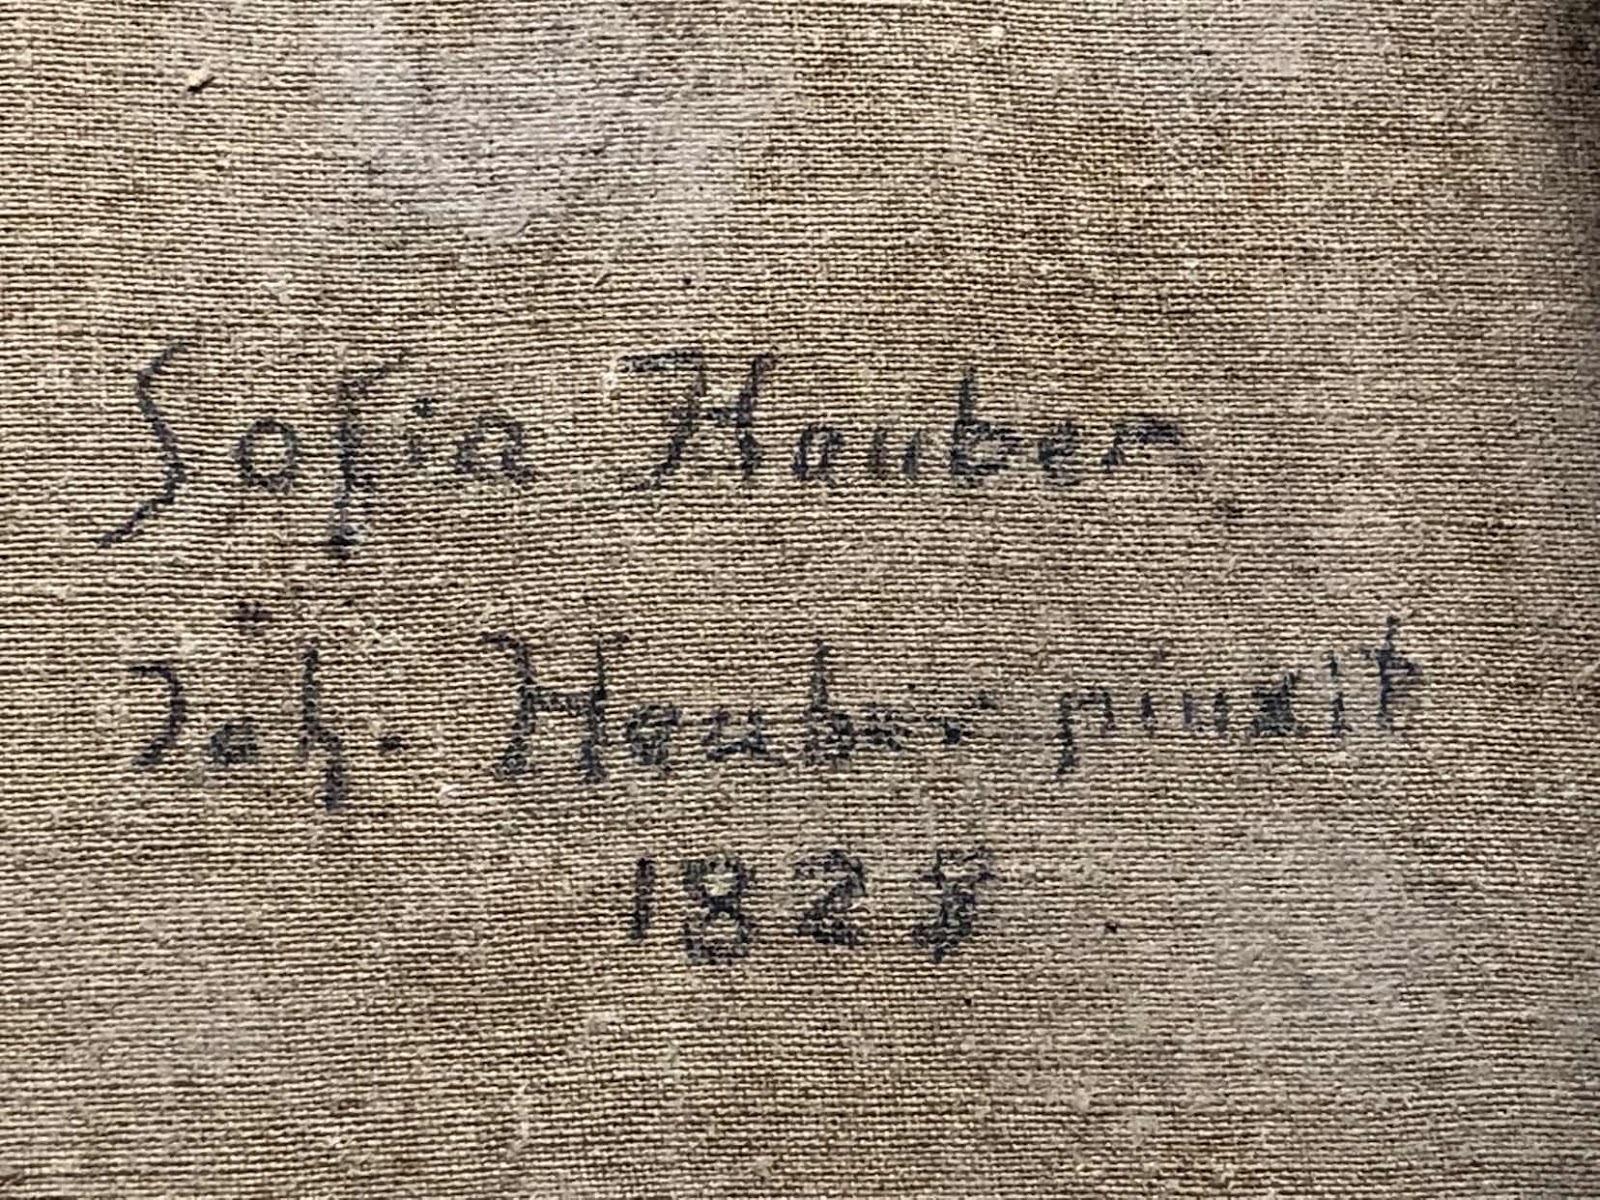 Sofia Hauber
Joh. Hauber pinxit